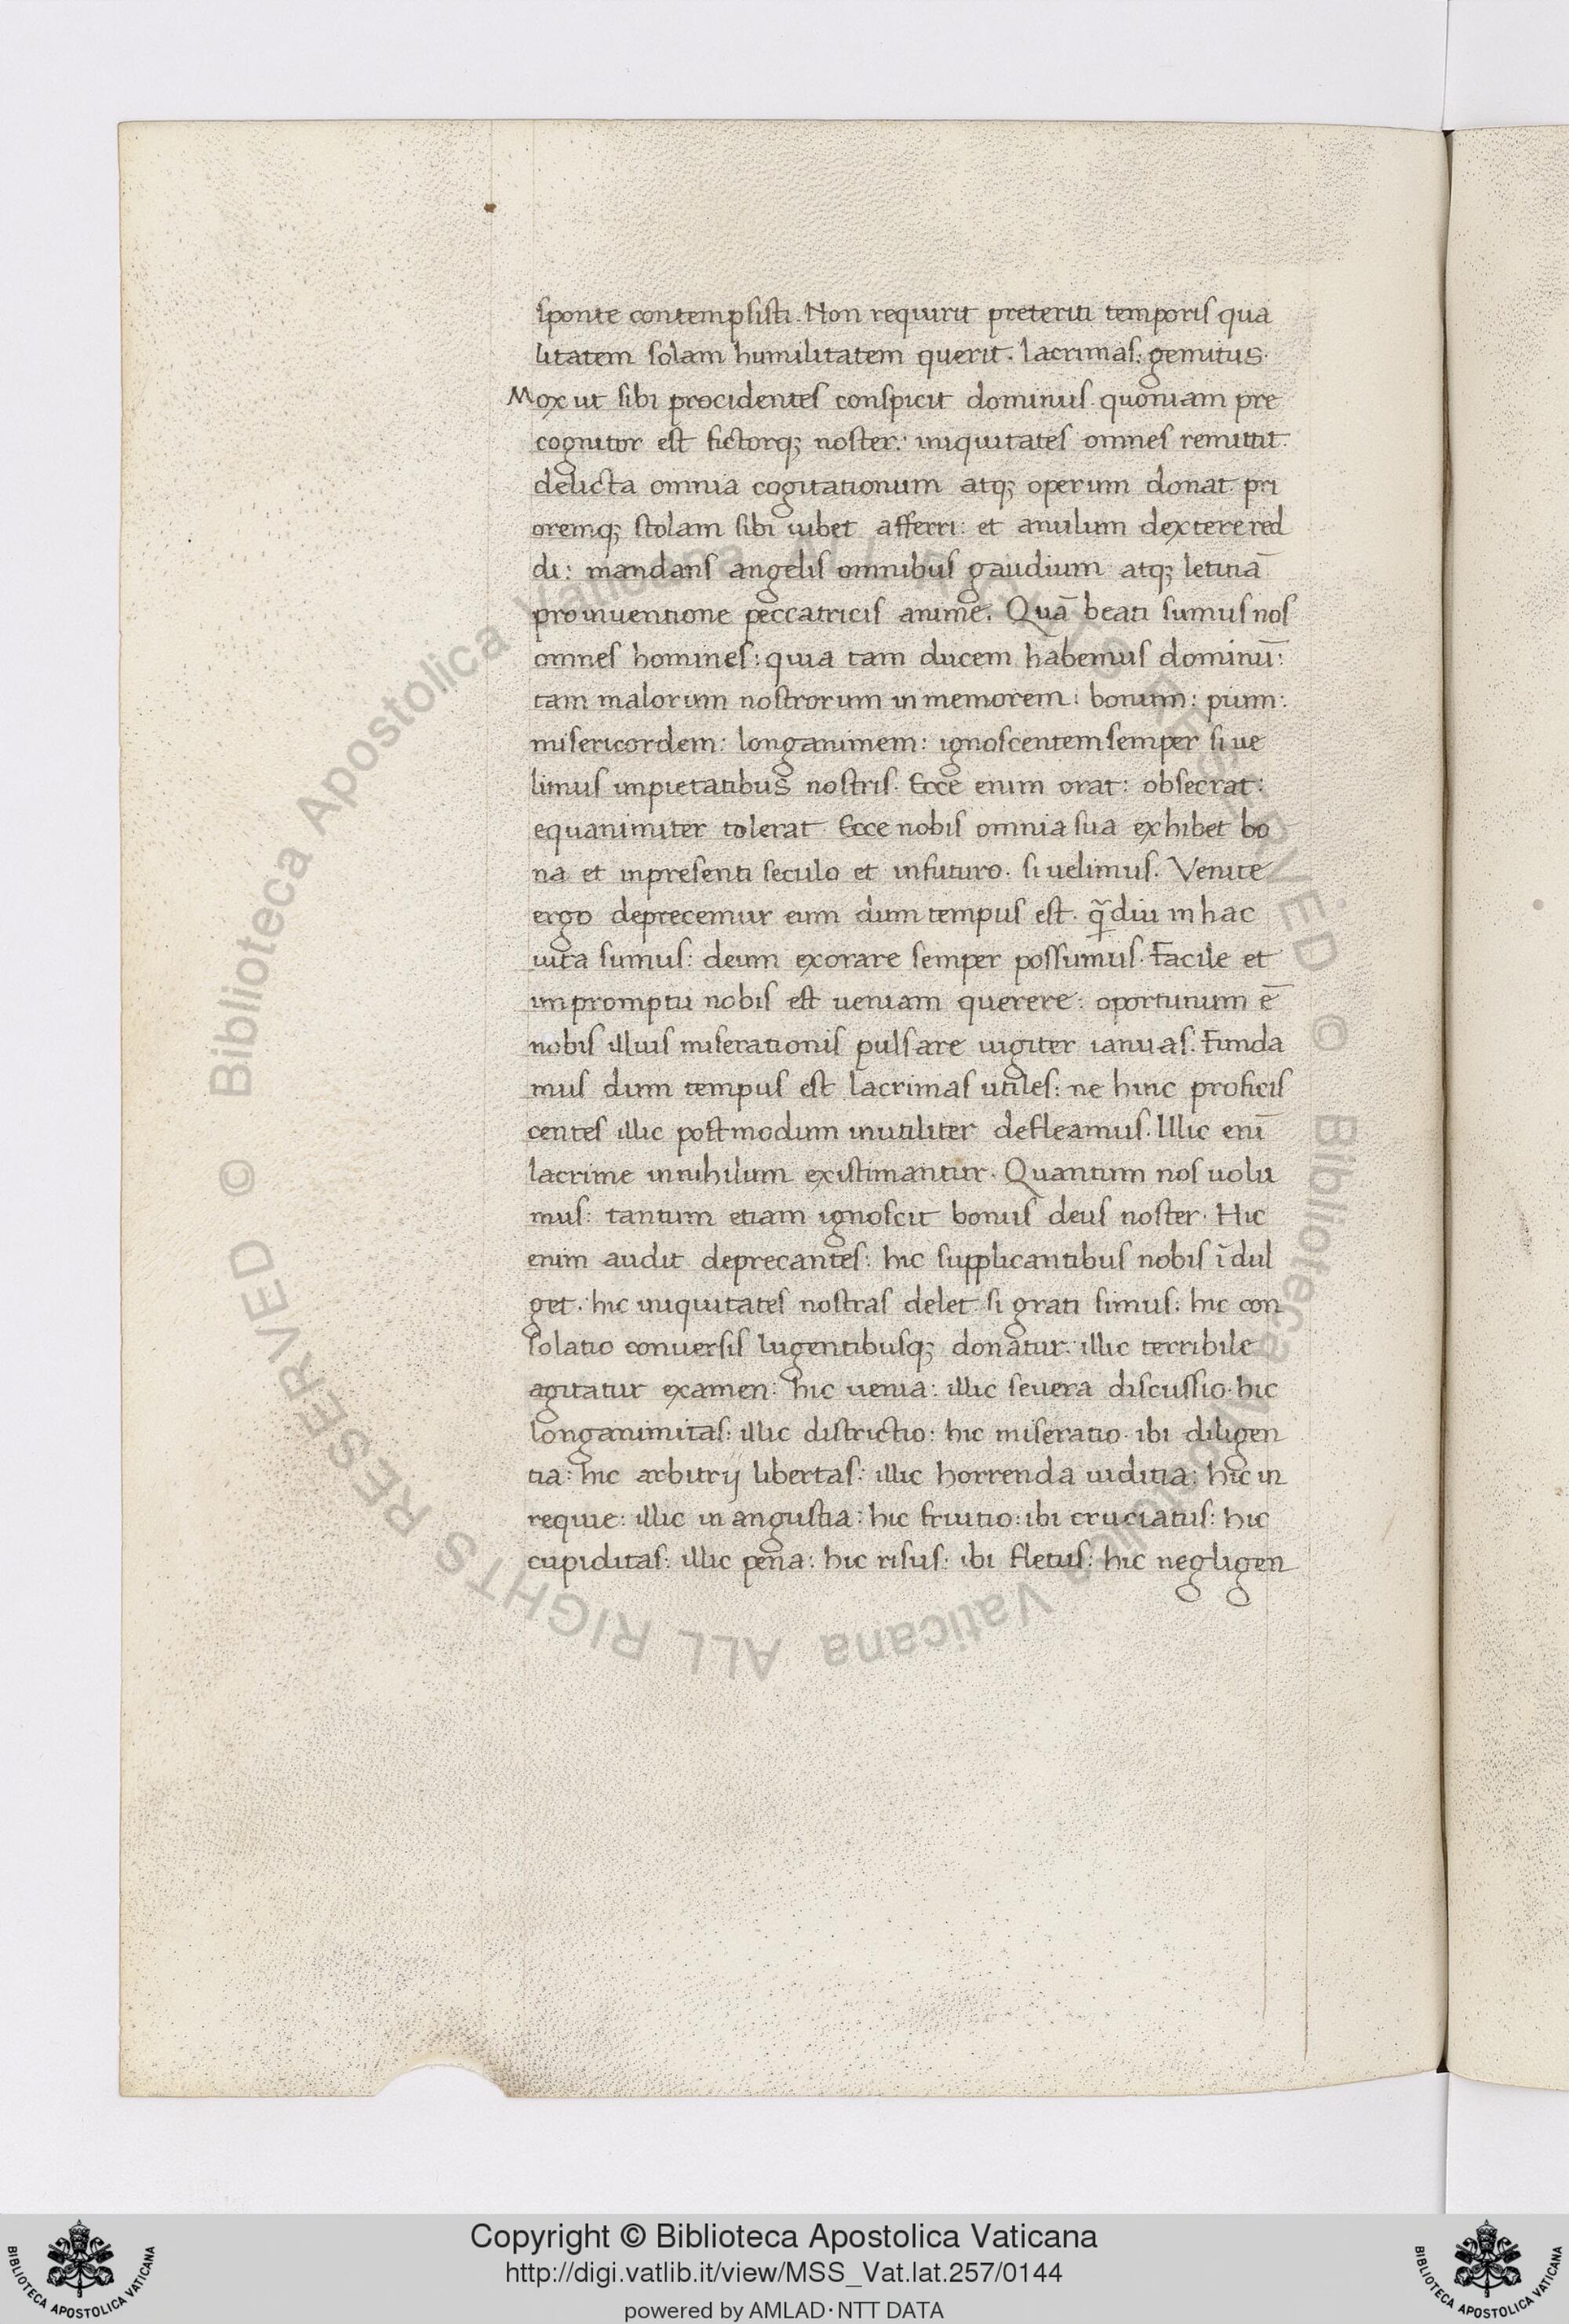 sponte contempsisti. Non requirit preteriti temporis qua
litatem solam humilitatem querit. lacrimas: gemitus.
Mox ut sibi procidentes conspicit dominus. quoniam pre
cognitor est fictorq; noster: iniquitates omnes remittit.
delicta omnia cogitationum atq; operum donat. pri
oremq; stolam sibi iubet afferri: et anulum dextere red
di: mandans angelis omnibus gaudium atq; letitiā
pro inuentione peccatricis anime. Quā beati sumus nos
omnes homines: quia tam ducem habemus dominū:
tam malorum nostrorum inmemorem: bonum: pium:
misericordem: longanimem: ignoscentem semper si ue
limus impietatibus nostris. Ecce enim orat: obsecrat:
equanimiter tolerat. Ecce nobis omnia sua exhibet bo
na et in presenti seculo et in futuro. si uelimus. Venite
ergo deprecemur eum dum tempus est. q̄diu in hac
uita sumus: deum exorare semper possumus. Facile et
impromptu nobis est ueniam querere: oportunum ē
nobis illius miserationis pulsare iugiter ianuas. Funda
mus dum tempus est lacrimas utiles: ne hinc proficis
centes illic postmodum inutiliter defleamus. Illic enī
lacrime in nihilum existimantur. Quantum nos uolu
mus: tantum etiam ignoscit bonus deus noster. Hic
enim audit deprecantes: hic supplicantibus nobis īdul
get. hic iniquitates nostras delet si grati simus: hic con
solatio conuersis lugentibusq; donatur: illic terribile
agitatur examen: hic uenia: illic seuera discussio. hic
longanimitas: illic districtio: hic miseratio. ibi diligen
tia: hic arbitrij libertas: illic horrenda iuditia: hic in
requie: illic in angustia: hic fruitio: ibi cruciatus: hic
cupiditas: illic pena: hic risus: ibi fletus: hic negligen
© Biblioteca Apostolica Vaticana ALL RIGHTS RESERVED © Biblioteca Apostolica Vaticana ALL RIGHTS RESERVED
Copyright © Biblioteca Apostolica Vaticana
http://digi.vatlib.it/view/MSS_Vat.lat.257/0144
powered by AMLAD·NTT DATA
BIBLIOTECA APOSTOLICA VATICANA
BIBLIOTECA APOSTOLICA VATICANA